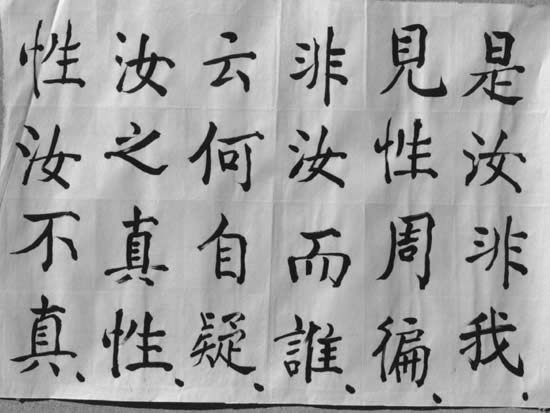 是汝非我、
見性周徧、
非汝而誰、
云何自疑、
汝之真性、
性汝不真、